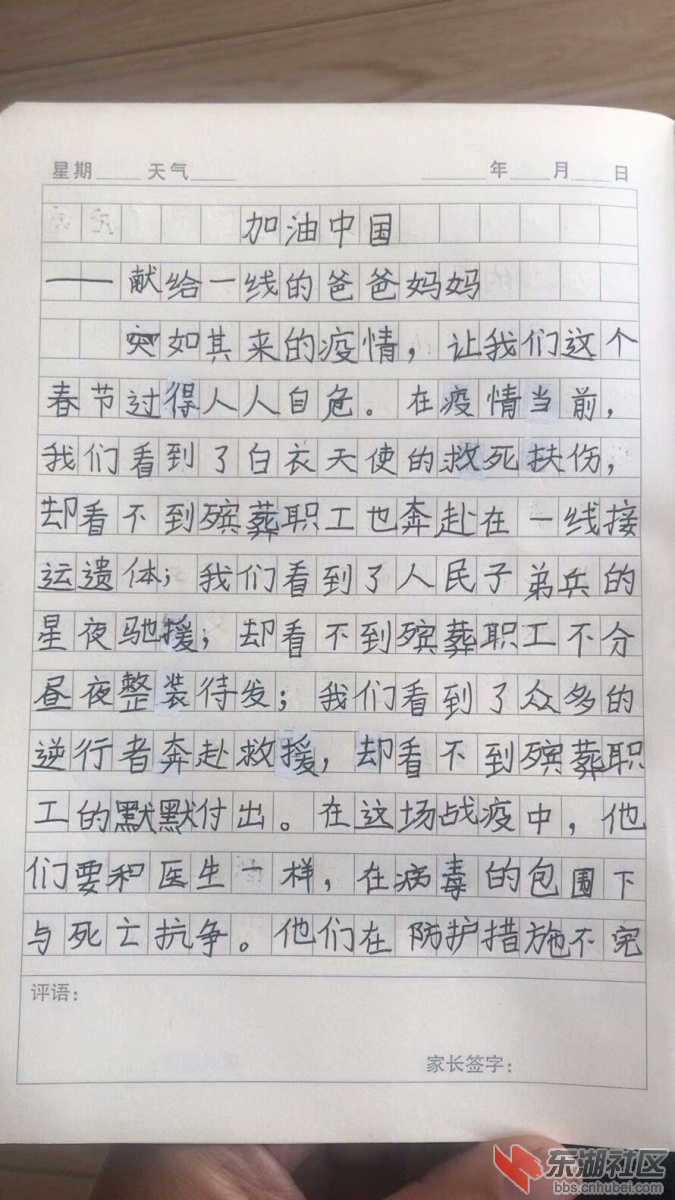 星期____天气____ ____年____月____日
加油中国
——献给一线的爸爸妈妈
突如其来的疫情，让我们这个
春节过得人人自危。在疫情当前，
我们看到了白衣天使的救死扶伤，
却看不到殡葬职工也奔赴在一线接
运遗体；我们看到了人民子弟兵的
星夜驰援；却看不到殡葬职工不分
昼夜整装待发；我们看到了众多的
逆行者奔赴救援，却看不到殡葬职
工的默默付出。在这场战疫中，他
们要和医生一样，在病毒的包围下
与死亡抗争。他们在防护措施不完
评语：
家长签字：
东湖社区
bbs.cnhubei.com